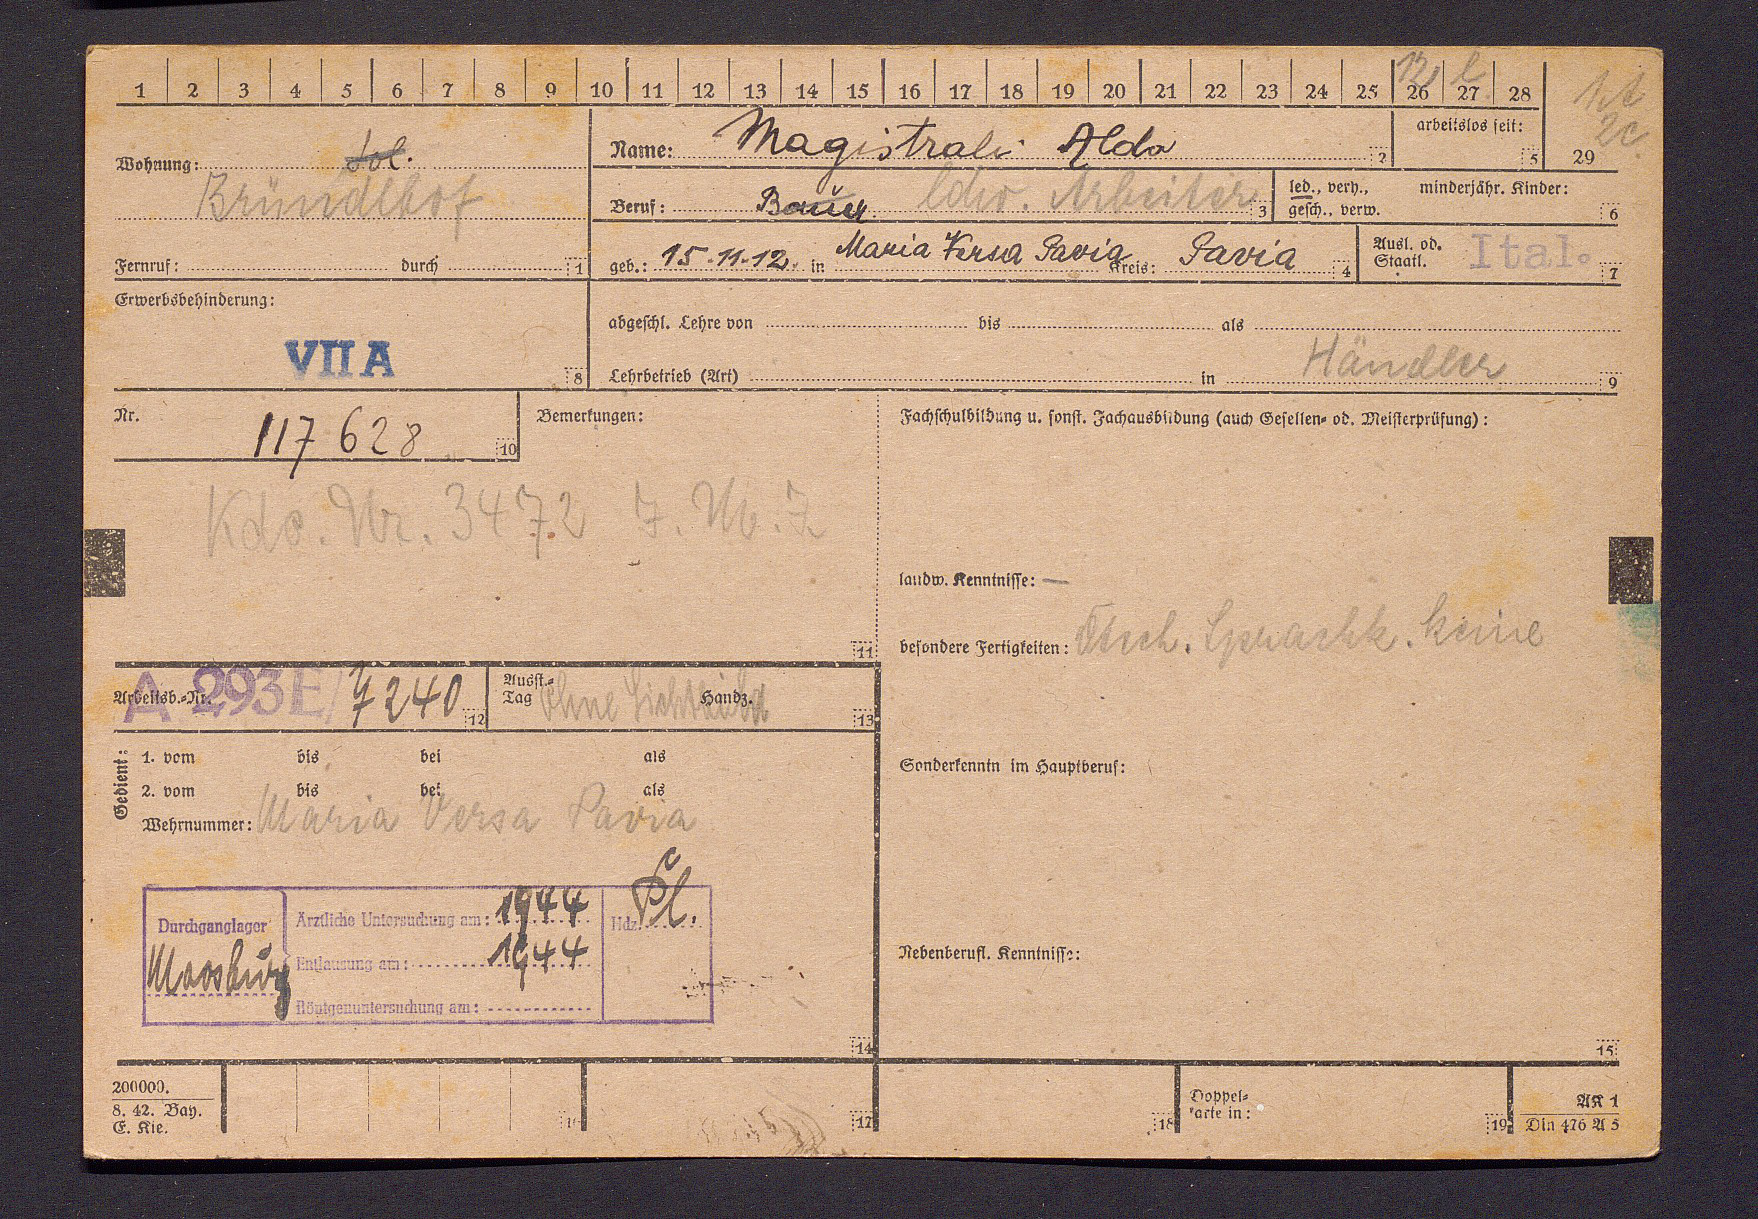 1 2 3 4 5 6 7 8 9 10 11 12 13 14 15 16 17 18 19 20 21 22 23 24 25 26 27 28
12, l
1.t
2c
29
Wohnung: sol.
Bründlhof
Fernruf: durch 1
Name: Magistrali Aldo 2
arbeitslos seit: 5
Beruf: Bauer ldw. Arbeiter 3
led., verh., gesch., verw.
minderjähr. Kinder: 6
geb.: 15.11.12. in Maria Versa Pavia Kreis: Pavia 4
Ausl. od. Staatl. Ital. 7
Erwerbsbehinderung:
VII A 8
abgeschl. Lehre von bis als
Händler
Lehrbetrieb (Art) in 9
Nr. 117 628 10
Bemerkungen:
Kdo. Nr. 3472
11
Fachschulbildung u. sonst. Fachausbildung (auch Gesellen- od. Meisterprüfung):
landw. Kenntnisse: —
besondere Fertigkeiten: Dtsch. Sprachk. keine
Sonderkenntn im Hauptberuf:
Nebenberufl. Kenntnisse:
15
Arbeitsb.-Nr. A 293E/ 7240 12
Ausst.-Tag Ohne Lichtbild Handz. 13
Gedient:
1. vom bis bei als
2. vom bis bei als
Wehrnummer: Maria Versa Pavia
Durchganglager
Moosburg
Ärztliche Untersuchung am: 1944
Entlausung am: 1944
Röntgenuntersuchung am:
Hdz. Pl.
14
200000.
8. 42. Bay.
E. Kie.
17
18
Doppel-
karte in:
19
AK 1
Din 476 A 5